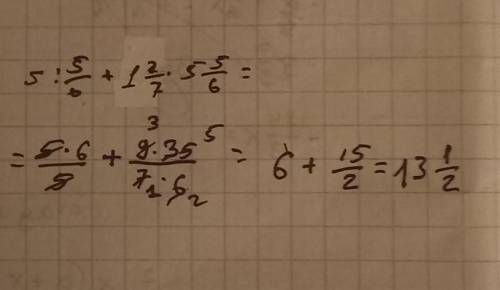 5 : 5/6 + 1 2/7 · 5 5/6 =
= 5·6/5 + 9·35/7·6 = 6 + 15/2 = 13 1/2
3 5 1 2